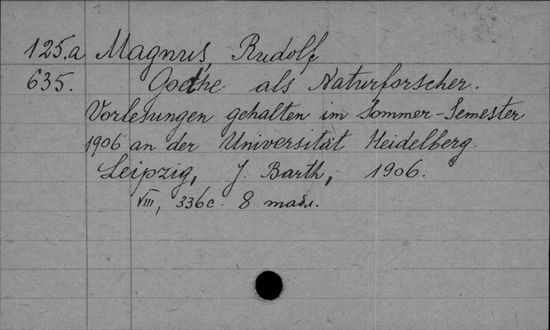 125.a Magnus, Rudolf,
635. Goethe als Naturforscher.
Vorlesungen gehalten im Sommer-Semester
1906 an der Universität Heidelberg.
Leipzig, J. Barth, 1906.
VIII, 336 c. 8 табл.